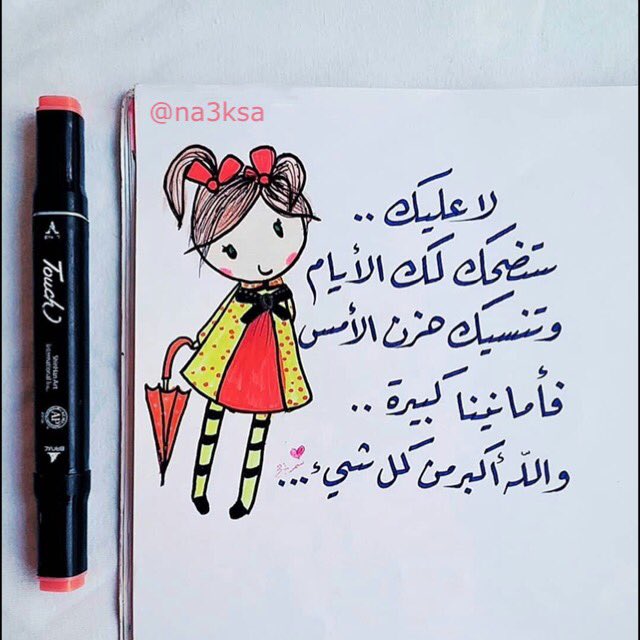 @na3ksa
لا عليك ..
ستضحك لك الأيام
وتنسيك حزن الأمس
فأمانينا كبيرة ..
والله أكبر من كل شيء ...
Touch
ShinHan Art
International Inc.